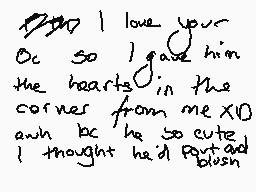 I love your
Oc so I gave him
the hearts in the
corner from me XD
awh bc he so cute
I thought he'd pout and
blush